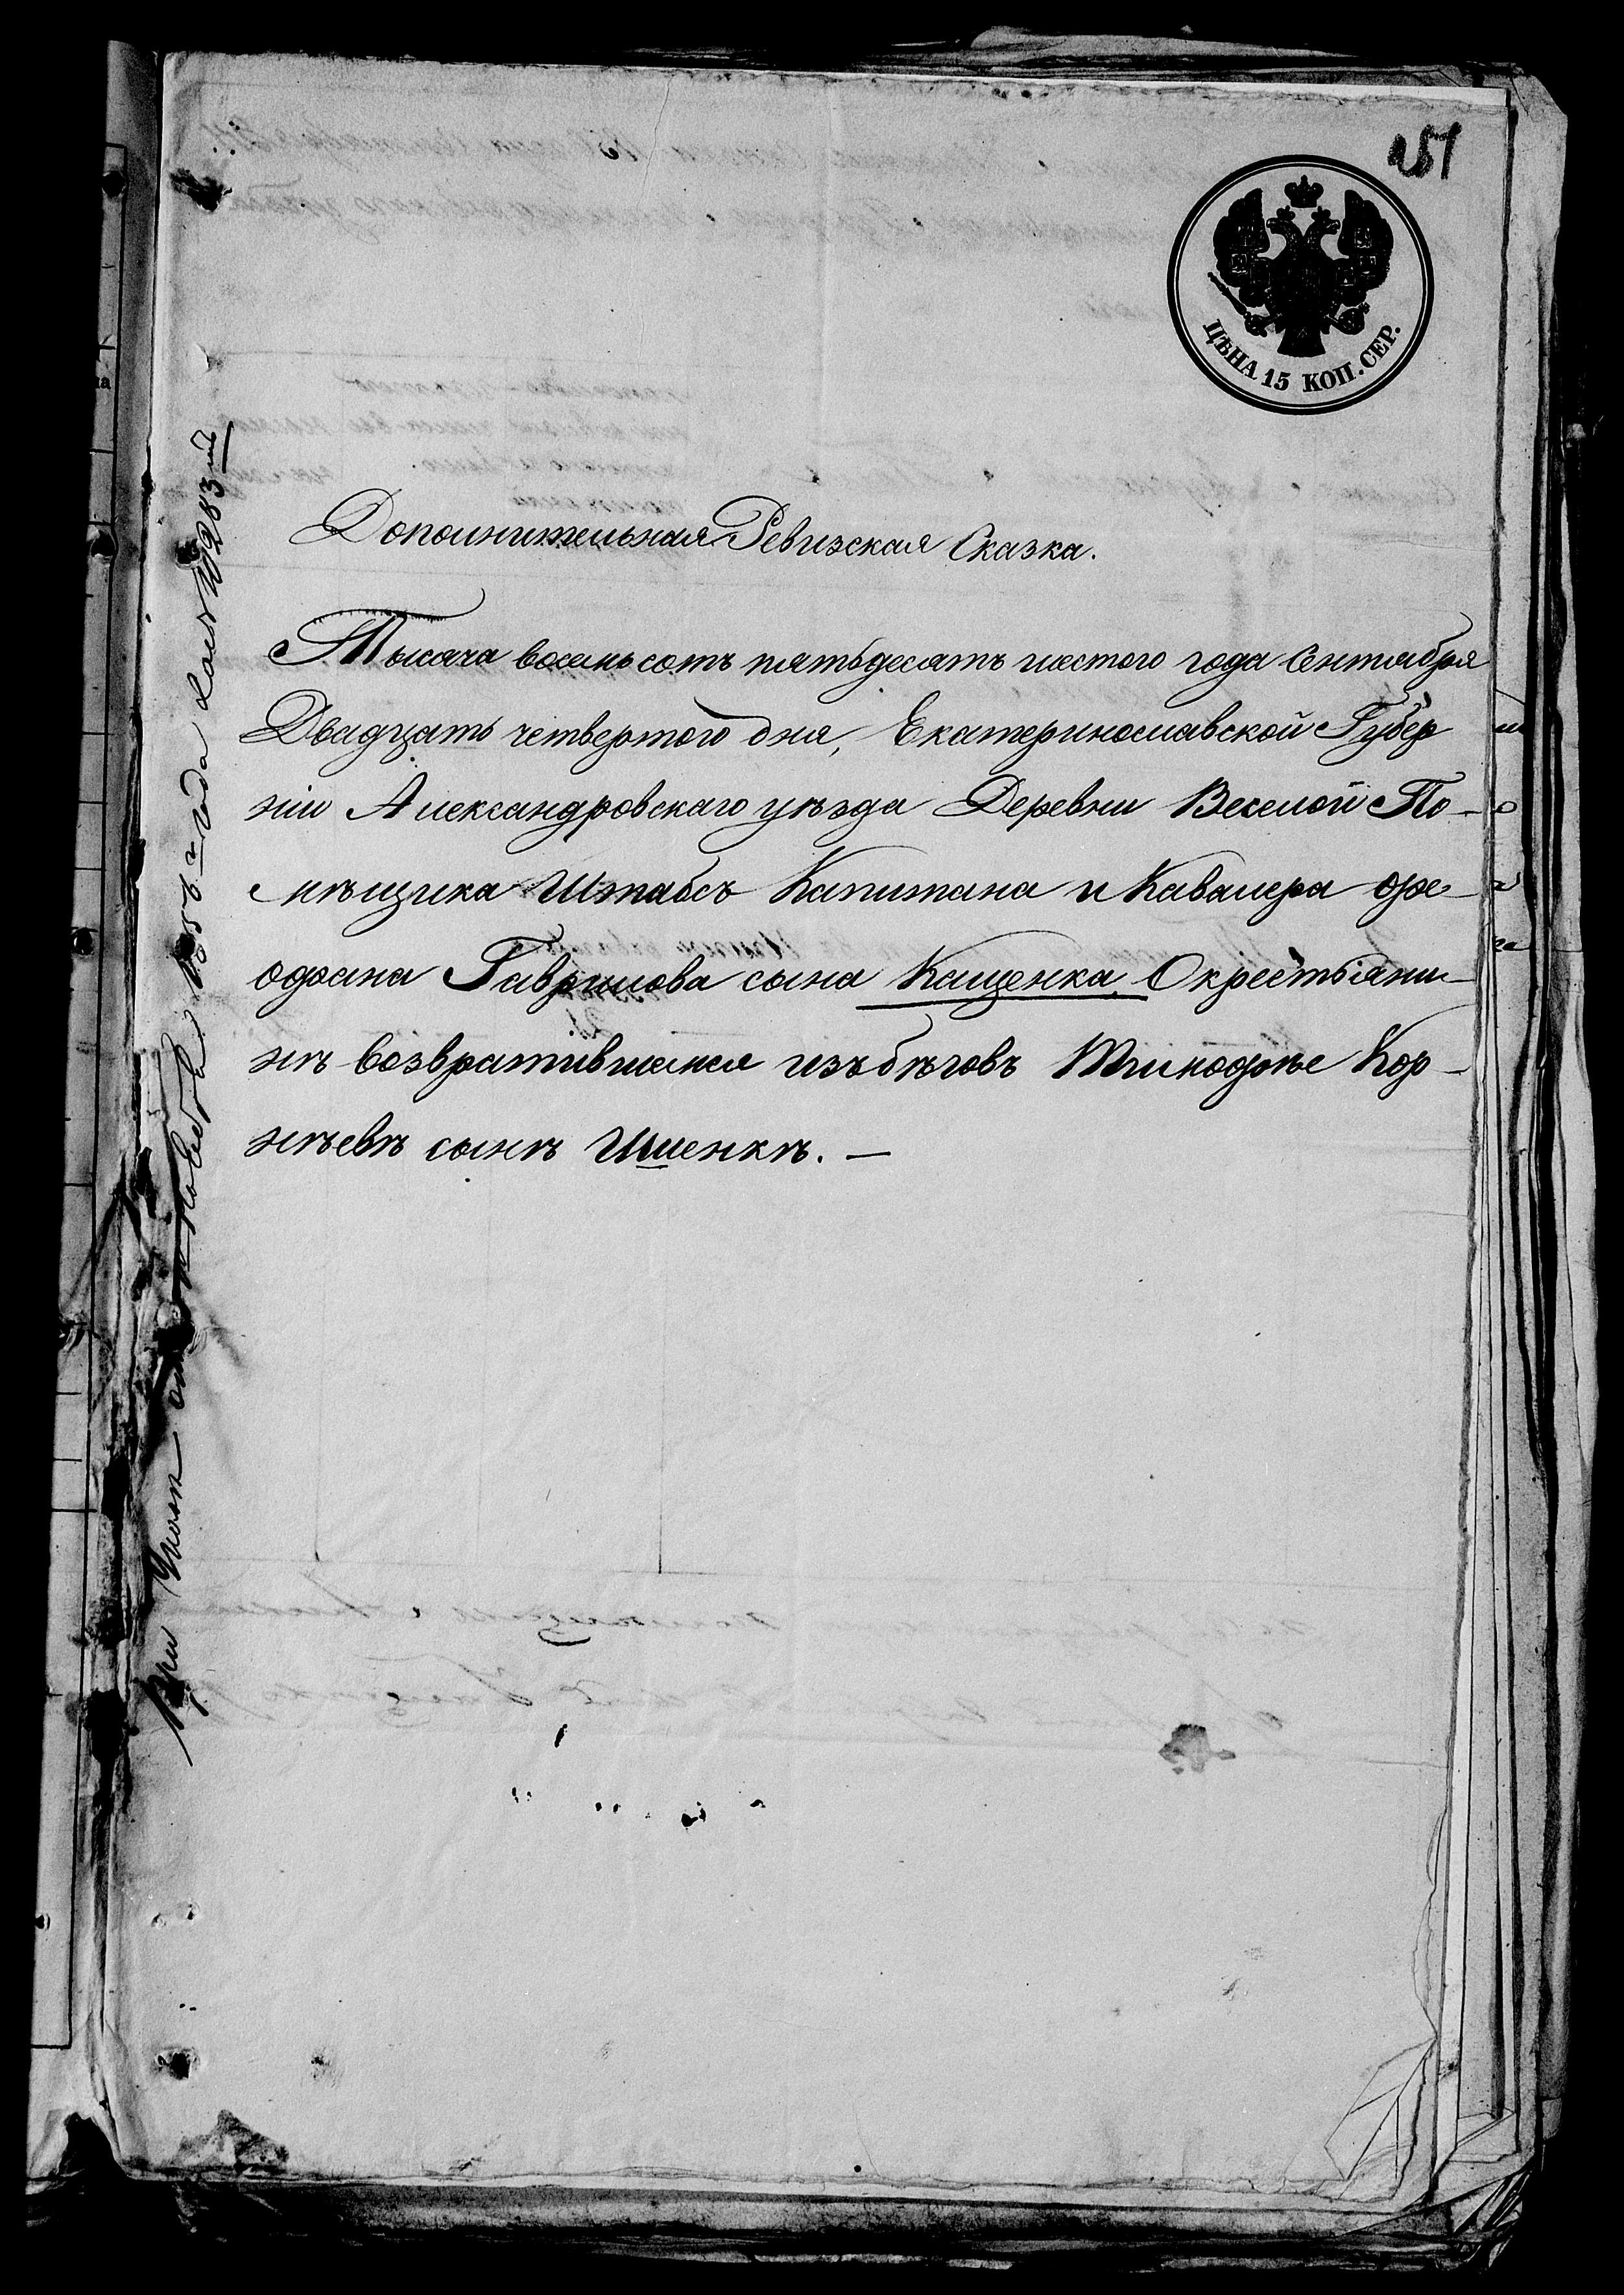 251
ЦѢНА 15 КОП. СЕР.
Дополнительная Ревизская Сказка.
Тысяча восемьсотъ пятьдесятъ шестого года Сентября
Двадцать четвертого дня, Екатеринославской Губер
ніи Александровскаго уѣзда Деревни Веселой По-
мѣщика Штабсъ Капитана и Кавалера Фе-
офана Гаврилова сына Кащенка О крестьяни-
нѣ возвратившемся изъ бѣговъ Тимофѣе Кор-
нѣевѣ сынѣ Ильенкѣ. —
При Указѣ 1856 г года № 283